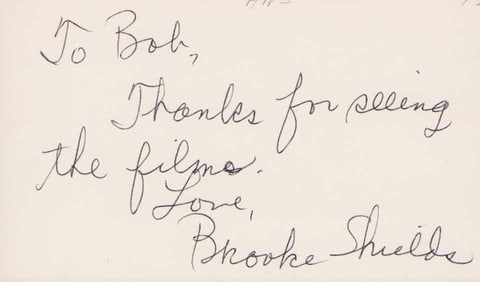 To Bob,
Thanks for seeing
the films.
Love,
Brooke Shields